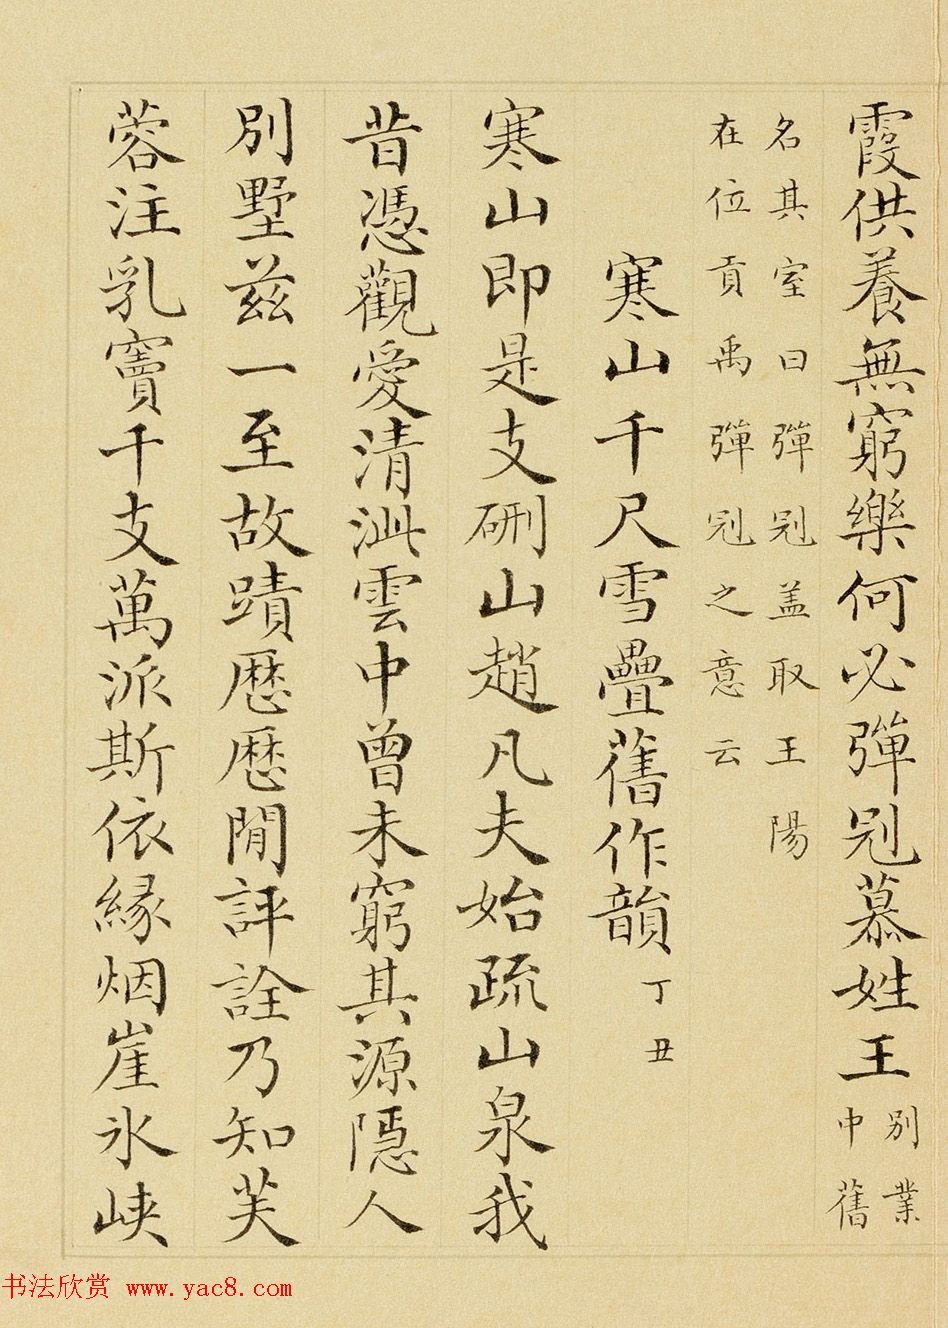 霞供養無窮樂何必彈冠慕姓王
別業
中舊
名其室曰彈冠蓋取王陽
在位貢禹彈冠之意云
寒山千尺雪疊舊作韻 丁丑
寒山即是支硎山趙凡夫始疏山泉我
昔憑觀愛清泚雲中曾未窮其源隱人
別墅茲一至故蹟歷歷閒評詮乃知芙
蓉注乳竇千支萬派斯依緣烟崖氷峽
书法欣赏 www.yac8.com